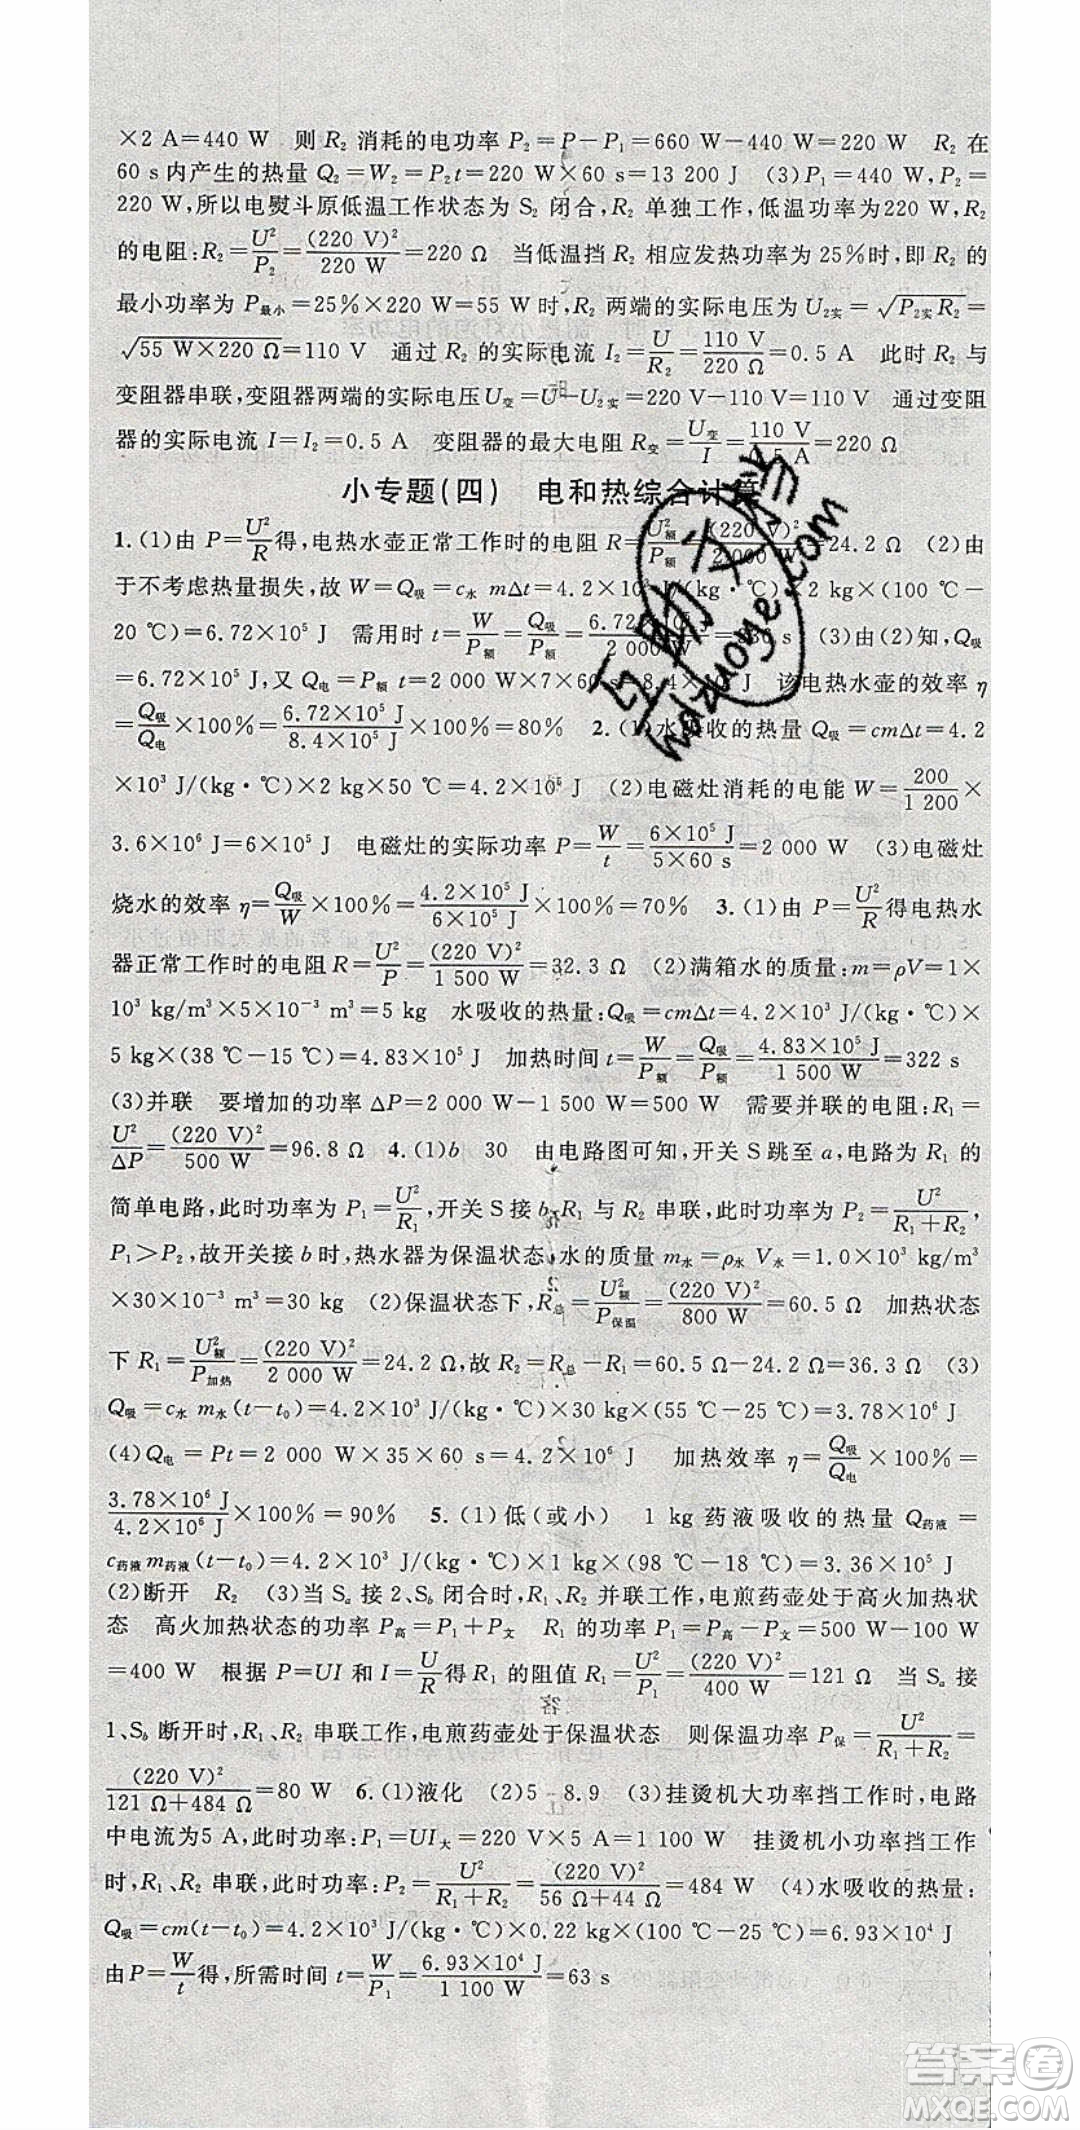 ×2 A=440 W 则 R₂ 消耗的电功率 P₂=P-P₁=660 W-440 W=220 W R₂ 在
60 s 内产生的热量 Q₂=W₂=P₂t=220 W×60 s=13 200 J (3)P₁=440 W,P₂=
220 W,所以电熨斗原低温工作状态为 S₂ 闭合,R₂ 单独工作,低温功率为220 W,R₂
的电阻:R₂=U²/P₂=(220 V)²/220 W=220 Ω 当低温挡 R₂ 相应发热功率为 25%时,即 R₂ 的
最小功率为 P最小=25%×220 W=55 W时,R₂ 两端的实际电压为 U₂实=√(P₂实R₂)=
√(55 W×220 Ω)=110 V 通过 R₂ 的实际电流 I₂=U/R₂=110 V/220 Ω=0.5 A 此时 R₂ 与
变阻器串联,变阻器两端的实际电压U变=U-U₂实=220 V-110 V=110 V 通过变阻
器的实际电流 I=I₂=0.5 A 变阻器的最大电阻 R变=U变/I=110 V/0.5 A=220 Ω
小专题(四) 电和热综合计算
1.(1)由 P=U²/R得,电热水壶正常工作时的电阻 R=U额²/P额=(220 V)²/2 000 W=24.2 Ω (2)由
于不考虑热量损失,故 W=Q吸=c水 mΔt=4.2×10³ J/(kg·℃)×2 kg×(100 ℃-
20 ℃)=6.72×10⁵ J 需用时 t=W/P额=Q吸/P额=6.72×10⁵ J/2 000 W=336 s (3)由(2)知,Q吸
=6.72×10⁵ J,又 Q电=P额 t=2 000 W×7×60 s=8.4×10⁵ J 该电热水壶的效率 η
=Q吸/Q电×100%=6.72×10⁵ J/8.4×10⁵ J×100%=80% 2.(1)水吸收的热量 Q吸=cmΔt=4.2
×10³ J/(kg·℃)×100 ℃=4.2×10⁵ J (2)电磁灶消耗的电能 W=200/1 200×
3.6×10⁶ J=6×10⁵ J 电磁灶的实际功率 P=W/t=6×10⁵ J/5×60 s=2 000 W (3)电磁灶
烧水的效率 η=Q吸/W×100%=4.2×10⁵ J/6×10⁵ J×100%=70% 3.(1)由 P=U²/R得电热水
器正常工作时的电阻 R=U²/P=(220 V)²/1 500 W=32.3 Ω (2)满箱水的质量:m=ρV=1×
10³ kg/m³×5×10⁻³ m³=5 kg 水吸收的热量:Q吸=cmΔt=4.2×10³ J/(kg·℃)×
5 kg×(38 ℃-15 ℃)=4.83×10⁵ J 加热时间 t=W/P额=Q吸/P额=4.83×10⁵ J/1 500 W=322 s
(3)并联 要增加的功率 ΔP=2 000 W-1 500 W=500 W 需要并联的电阻:R₁=
U²/ΔP=(220 V)²/500 W=96.8 Ω 4.(1)b 30 由电路图可知,开关 S 跳至 a,电路为 R₁ 的
简单电路,此时功率为 P₁=U²/R₁,开关 S 接 b,R₁ 与 R₂ 串联,此时功率为 P₂=U²/(R₁+R₂),
P₁>P₂,故开关接 b 时,热水器为保温状态,水的质量 m水=ρ水 V水=1.0×10³ kg/m³
×30×10⁻³ m³=30 kg (2)保温状态下,R总=U额²/P保温=(220 V)²/800 W=60.5 Ω 加热状态
下 R₁=U额²/P加热=(220 V)²/2 000 W=24.2 Ω,故 R₂=R总-R₁=60.5 Ω-24.2 Ω=36.3 Ω (3)
Q吸=c水 m水(t-t₀)=4.2×10³ J/(kg·℃)×30 kg×(55 ℃-25 ℃)=3.78×10⁶ J
(4)Q电=Pt=2 000 W×35×60 s=4.2×10⁶ J 加热效率 η=Q吸/Q电×100%=
3.78×10⁶ J/4.2×10⁶ J×100%=90% 5.(1)低(或小) 1 kg 药液吸收的热量 Q药液=
c药液m药液(t-t₀)=4.2×10³ J/(kg·℃)×1 kg×(98 ℃-18 ℃)=3.36×10⁵ J
(2)断开 R₂ (3)当 Sₐ 接 2、S_b 闭合时,R₁、R₂ 并联工作,电煎药壶处于高火加热状
态 高火加热状态的功率 P高=P₁+P文 R₁ 的功率 P₁=P高-P文=500 W-100 W
=400 W 根据 P=UI 和 I=U/R得 R₁ 的阻值 R₁=U²/P₁=(220 V)²/400 W=121 Ω 当 Sₐ 接
1、S_b 断开时,R₁、R₂ 串联工作,电煎药壶处于保温状态 则保温功率 P保=U²/(R₁+R₂)=
(220 V)²/(121 Ω+484 Ω)=80 W 6.(1)液化 (2)5 8.9 (3)挂烫机大功率挡工作时,电路
中电流为5 A,此时功率:P₁=UI大=220 V×5 A=1 100 W 挂烫机小功率挡工作
时,R₁、R₂ 串联,此时功率:P₂=U²/(R₁+R₂)=(220 V)²/(56 Ω+44 Ω)=484 W (4)水吸收的热量:
Q吸=cm(t-t₀)=4.2×10³ J/(kg·℃)×0.22 kg×(100 ℃-25 ℃)=6.93×10⁴ J
由P=W/t得,所需时间 t=W/P₁=6.93×10⁴ J/1 100 W=63 s
互助文学
hdzuoye.com
答案圈
MXQE.COM